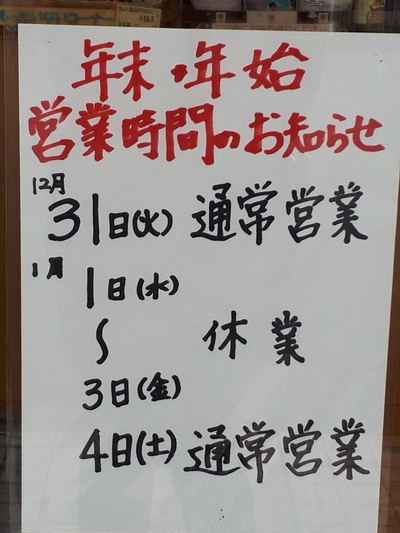 年末・年始
営業時間のお知らせ
12月
31日(火) 通常営業
1月
1日(水)
〜 休業
3日(金)
4日(土) 通常営業